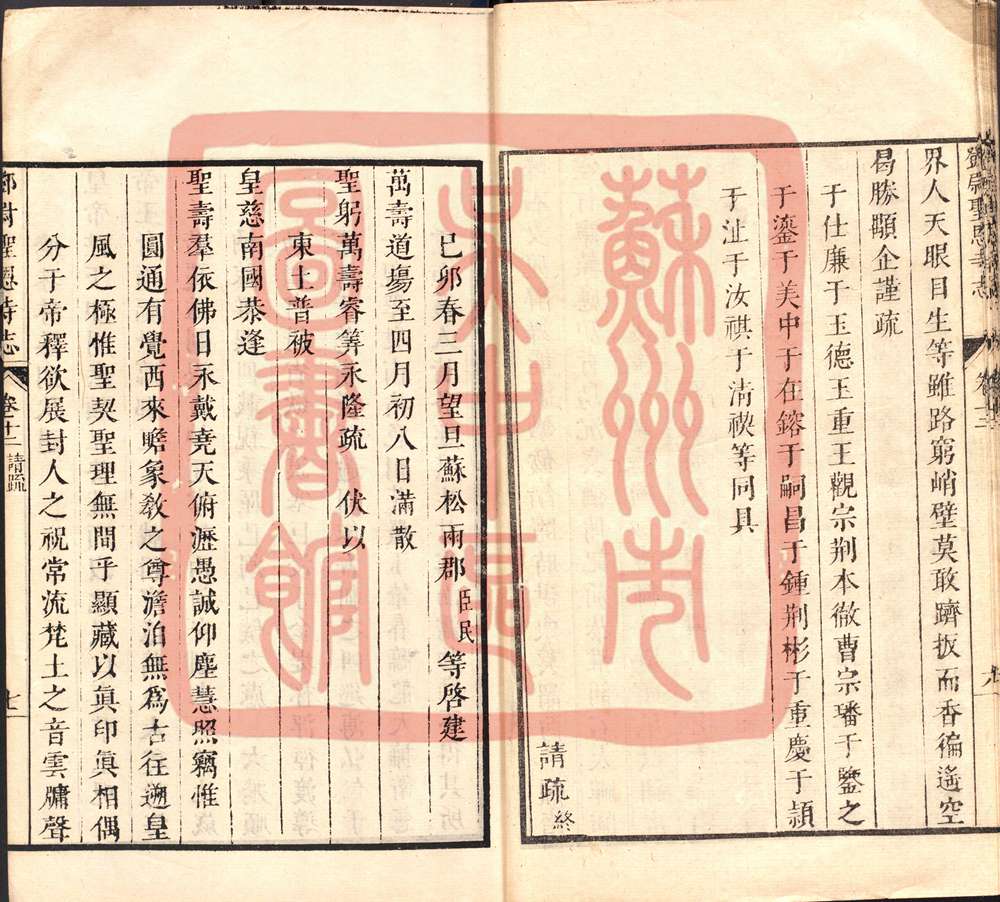 界人天眼目生等雖路窮峭壁莫敢躋扳而香徧遙空
曷勝顒企謹疏
于仕廉于玉德王重王觀宗荆本徹曹宗璠于鑒之
于鎏于美中于在鎔于嗣昌于鍾荆彬于重慶于頴
于沚于汝祺于淸禊等同具
請疏終
聖恩寺志
己卯春三月望旦蘇松兩郡臣民等啓建
萬壽道塲至四月初八日滿散
聖躬萬壽睿筭永隆疏 伏以
東土普被
皇慈南國恭逢
聖壽羣依佛日永戴堯天俯瀝愚誠仰塵慧照竊惟
圓通有覺西來瞻象敎之尊澹泊無爲古往遡皇
風之極惟聖契聖理無間乎顯藏以眞印眞相偶
分于帝釋欲展封人之祝常流梵土之音雲牗聲
鄧尉聖恩寺志
卷十二
請疏
七
蘇州市
文中區
圖書館